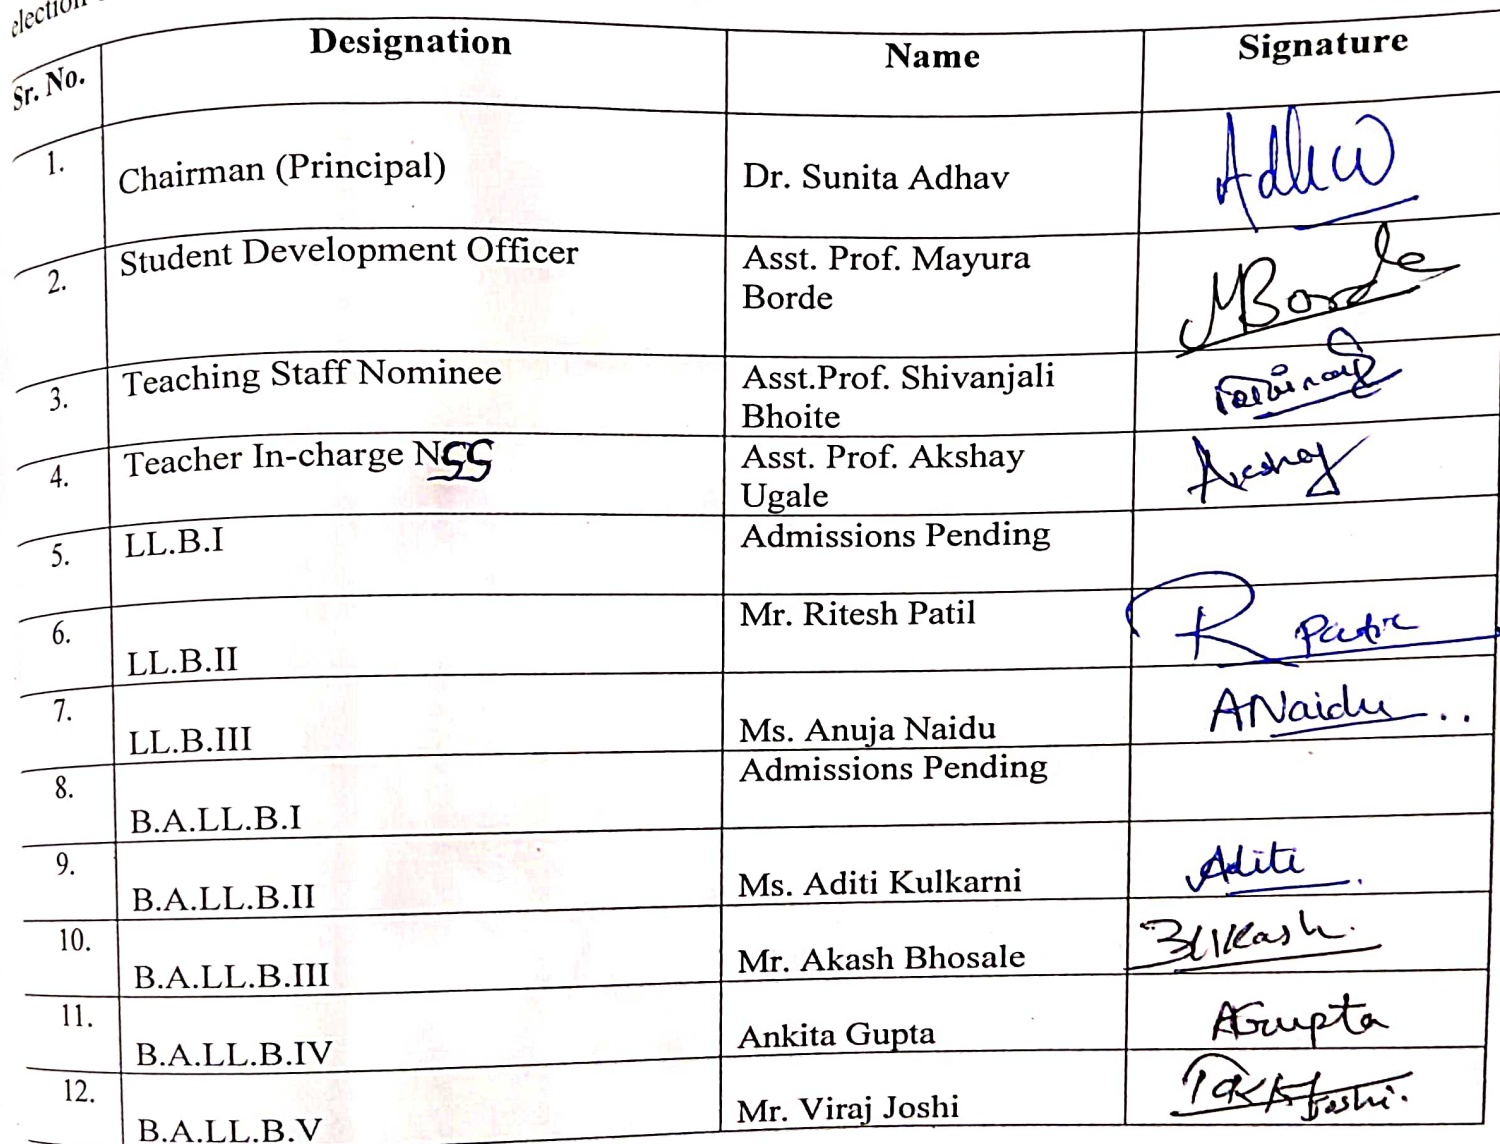 election
Sr. No. Designation Name Signature
1. Chairman (Principal) Dr. Sunita Adhav
2. Student Development Officer Asst. Prof. Mayura
Borde MBorde
3. Teaching Staff Nominee Asst.Prof. Shivanjali
Bhoite
4. Teacher In-charge NSS Asst. Prof. Akshay
Ugale Akshay
5. LL.B.I Admissions Pending
6. LL.B.II Mr. Ritesh Patil R Patil
7. LL.B.III Ms. Anuja Naidu ANaidu ..
8. B.A.LL.B.I Admissions Pending
9. B.A.LL.B.II Ms. Aditi Kulkarni Aditi
10. B.A.LL.B.III Mr. Akash Bhosale
11. B.A.LL.B.IV Ankita Gupta AGupta
12. B.A.LL.B.V Mr. Viraj Joshi